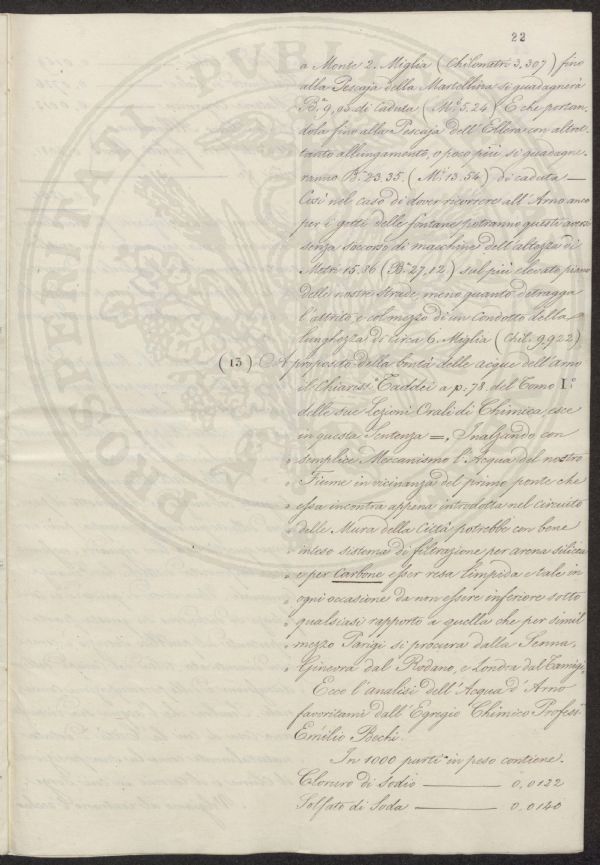 22
a Monte 2. Miglia (Chilometri 3,307) fino
alla Pescaja della Martellina si guadagnerà
B.ª 9,05 di caduta (M.i 5,24) E che portan-
dola fino alla Pescaja dell'Ellera con altret-
tanto allungamento, o poco più, si guadagne-
ranno B.ª 23.35. (M.i 13.54) di caduta —
Così nel caso di dover ricorrere all'Arno anco
per i getti delle fontane potranno questi aversi
senza soccorso di macchine dell'altezza di
Metri 15.86 (B.ª 27,12) sul più elevato piano
delle nostre Strade, meno quanto detragga
l'attrito e col mezzo di un Condotto della
lunghezza di circa 6. Miglia (Chil. 9,922)
(13) A proposito della bontà delle acque dell'Arno
il Chiariss. Taddei a p: 78. del Tomo I.º
delle sue Lezioni Orali di Chimica, esce
in questa Sentenza =, Inalzando con
" semplice Meccanismo l'Acqua del nostro
" Fiume in vicinanza del primo ponte che
" essa incontra appena introdotta nel circuito
" delle Mura della Città potrebbe con bene
" inteso sistema di filtrazione per arena silicea
" e per Carbone esser resa limpida e tale in
" ogni occasione da non essere inferiore sotto
" qualsiasi rapporto a quella che per simil
" mezzo Parigi si procura dalla Senna,
" Ginevra dal Rodano, e Londra dal Tamigi.
Ecco l'analisi dell'Acqua d'Arno
favoritami dall'Egregio Chimico Profess.
Emilio Bechi.
In 1000 parti in peso contiene.
Cloruro di Sodio — 0,0122
Solfato di Soda — 0,0140
PROSPERITATI PVBLICAE